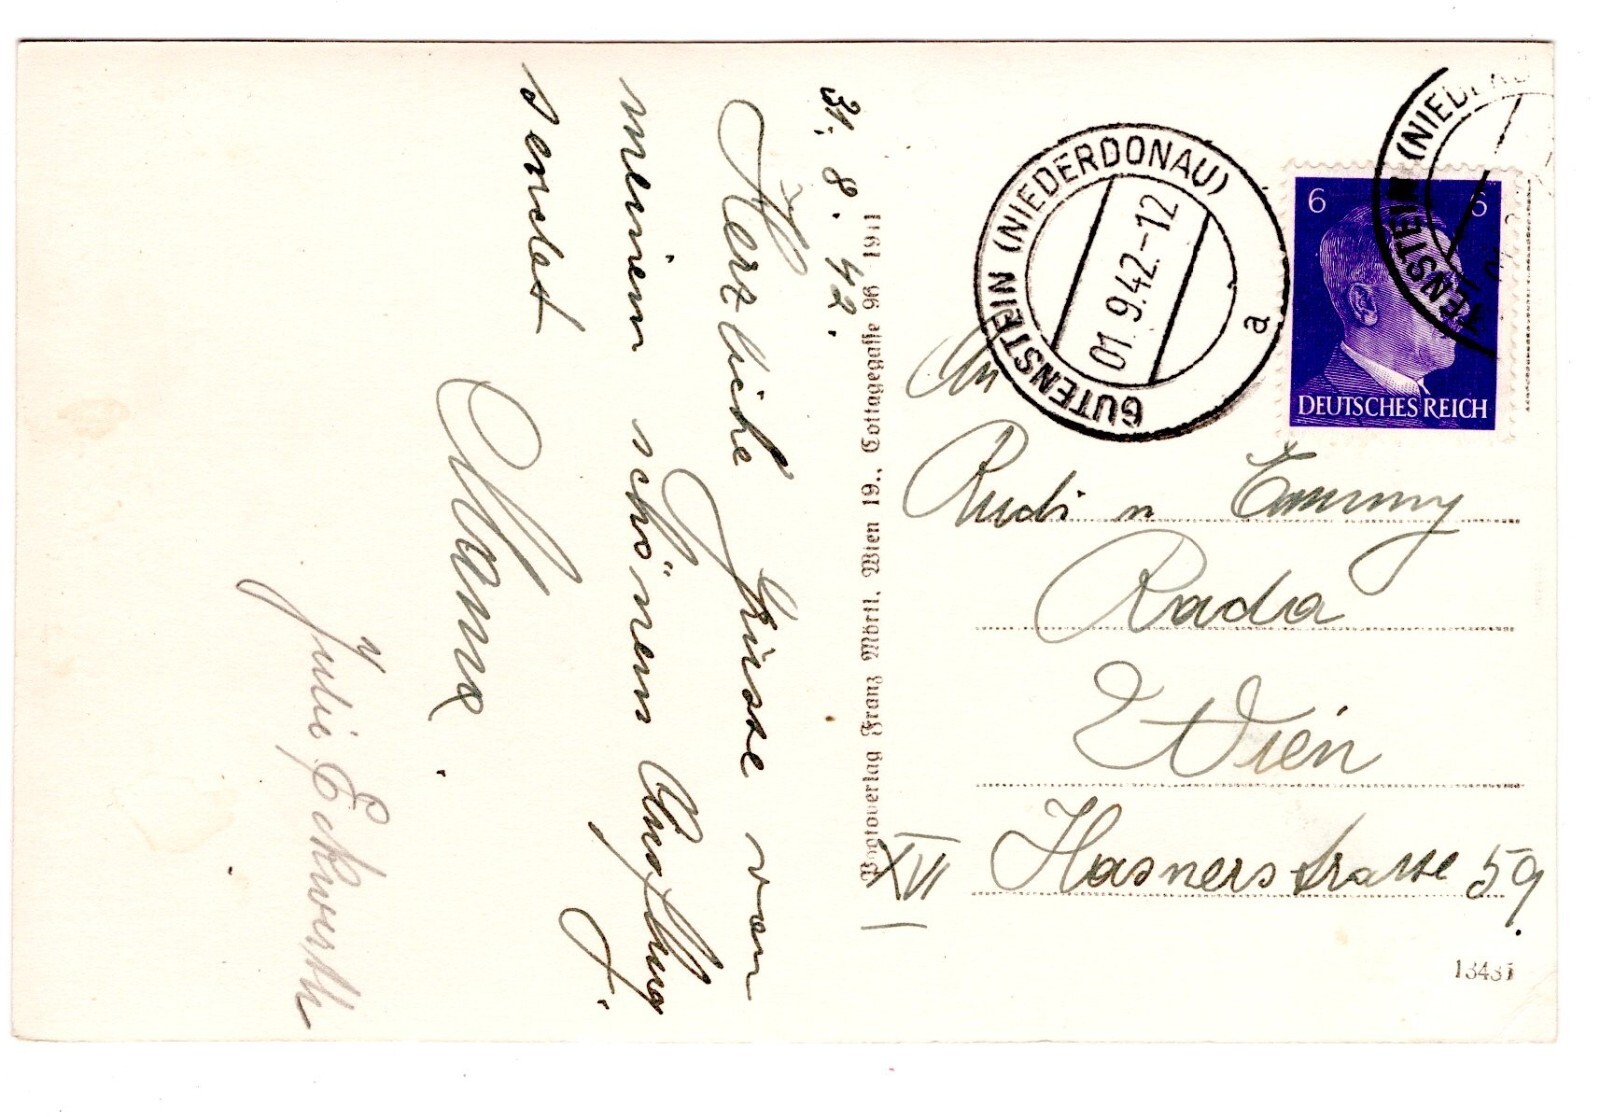 31. 8. 42.
Herzliche Grüsse von
meinem schönem Ausflug
sendet
Mama.
Julie Eckwerth
Fotoverlag Franz Mörtl, Wien 19., Cottagegasse 96 1941
GUTENSTEIN (NIEDERDONAU)
01.9.42.-12
a
TENSTEIN (NIEDERDO
6 6
DEUTSCHES REICH
An
Rudi u Emmy
Rada
Wien
XVI Hasnerstrasse 59.
13431